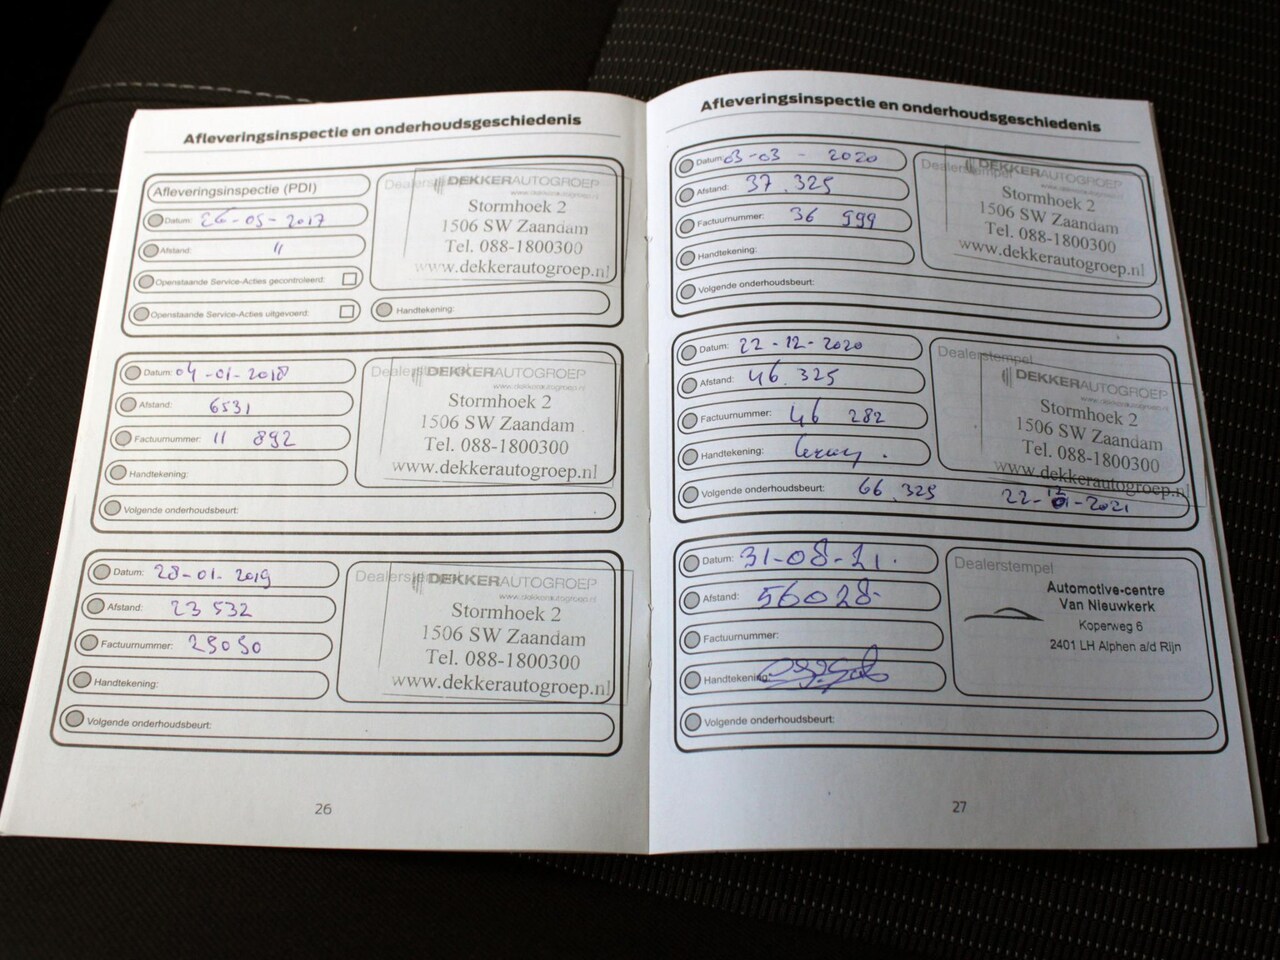 Afleveringsinspectie en onderhoudsgeschiedenis
Afleveringsinspectie (PDI)
Datum: 26-05-2017
Afstand: "
Openstaande Service-Acties gecontroleerd:
Openstaande Service-Acties uitgevoerd:
DEKKERAUTOGROEP
www.dekkerautogroep.nl
Stormhoek 2
1506 SW Zaandam
Tel. 088-1800300
www.dekkerautogroep.nl
Handtekening:
Datum: 04-01-2018
Afstand: 6531
Factuurnummer: 11 892
Handtekening:
Volgende onderhoudsbeurt:
DEKKERAUTOGROEP
www.dekkerautogroep.nl
Stormhoek 2
1506 SW Zaandam
Tel. 088-1800300
www.dekkerautogroep.nl
Datum: 28-01-2019
Afstand: 23 532
Factuurnummer: 25050
Handtekening:
Volgende onderhoudsbeurt:
DEKKERAUTOGROEP
www.dekkerautogroep.nl
Stormhoek 2
1506 SW Zaandam
Tel. 088-1800300
www.dekkerautogroep.nl
26
Afleveringsinspectie en onderhoudsgeschiedenis
Datum: 03-03-2020
Afstand: 37.325
Factuurnummer: 36 999
Handtekening:
Volgende onderhoudsbeurt:
Dealerstempel
DEKKERAUTOGROEP
www.dekkerautogroep.nl
Stormhoek 2
1506 SW Zaandam
Tel. 088-1800300
www.dekkerautogroep.nl
Datum: 22-12-2020
Afstand: 46.325
Factuurnummer: 46 282
Handtekening:
Volgende onderhoudsbeurt: 66.325 22-12-2021
Dealerstempel
DEKKERAUTOGROEP
www.dekkerautogroep.nl
Stormhoek 2
1506 SW Zaandam
Tel. 088-1800300
www.dekkerautogroep.nl
Datum: 31-08-21.
Afstand: 56028-
Factuurnummer:
Handtekening:
Volgende onderhoudsbeurt:
Dealerstempel
Automotive-centre
Van Nieuwkerk
Koperweg 6
2401 LH Alphen a/d Rijn
27